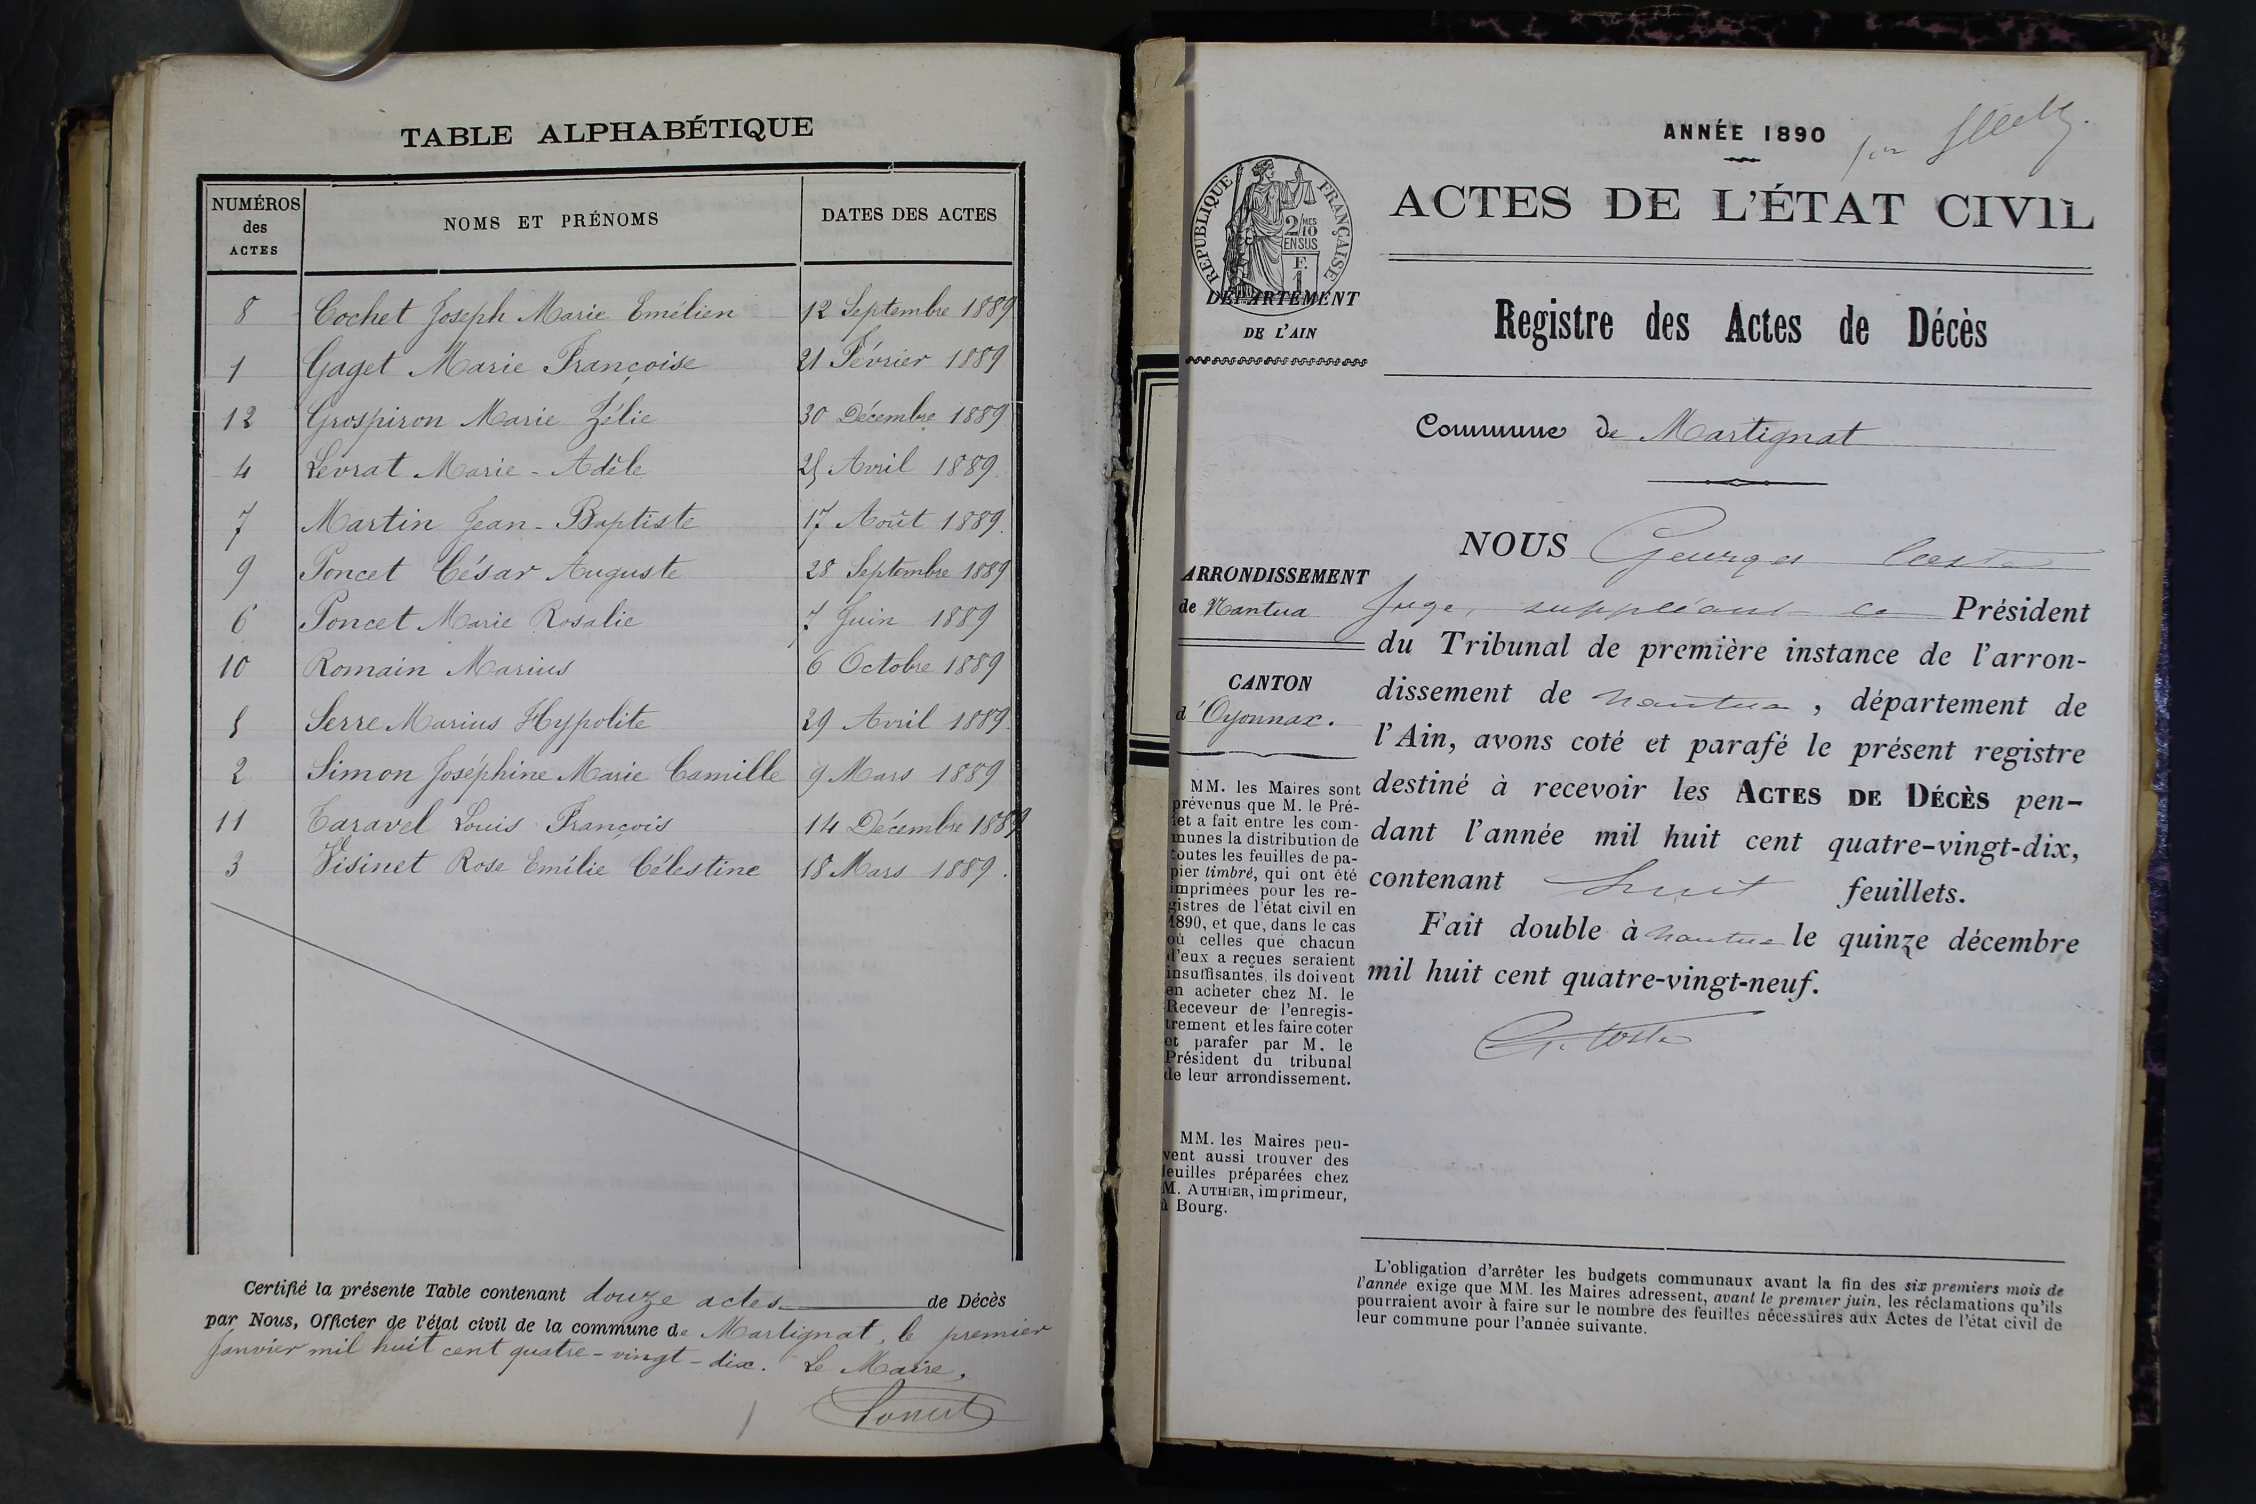 TABLE ALPHABÉTIQUE
NUMÉROS
des
ACTES
NOMS ET PRÉNOMS
DATES DES ACTES
8 Cochet Joseph Marie Emélien 12 Septembre 1889
1 Gaget Marie Françoise 21 Février 1889
12 Grospiron Marie Zélie 30 Décembre 1889
4 Levrat Marie-Adèle 25 Avril 1889.
7 Martin Jean-Baptiste 17 Août 1889.
9 Poncet César Auguste 28 Septembre 1889
6 Poncet Marie Rosalie 7 Juin 1889
10 Romain Marius 6 Octobre 1889
5 Serre Marius Hypolite 29 Avril 1889.
2 Simon Joséphine Marie Camille 9 Mars 1889
11 Taravel Louis François 14 Décembre 1889
3 Visinet Rose Emilie Célestine 18 Mars 1889.
Certifié la présente Table contenant douze actes de Décès
par Nous, Officier de l'état civil de la commune de Martignat, le premier
Janvier mil huit cent quatre-vingt-dix. Le Maire,
ANNÉE 1890
RÉPUBLIQUE FRANÇAISE
2/10
MES
EN SUS
F.
1
ACTES DE L'ÉTAT CIVIL
DÉPARTEMENT
DE L'AIN
Registre des Actes de Décès
Commune de Martignat
ARRONDISSEMENT
de Nantua
CANTON
d'Oyonnax.
MM. les Maires sont
prévenus que M. le Pré-
fet a fait entre les com-
munes la distribution de
toutes les feuilles de pa-
pier timbré, qui ont été
imprimées pour les re-
gistres de l'état civil en
1890, et que, dans le cas
où celles que chacun
d'eux a reçues seraient
insuffisantes, ils doivent
en acheter chez M. le
Receveur de l'enregis-
trement et les faire coter
et parafer par M. le
Président du tribunal
de leur arrondissement.
MM. les Maires peu-
vent aussi trouver des
feuilles préparées chez
M. AUTHIER, imprimeur,
à Bourg.
NOUS Georges
Juge suppléant Président
du Tribunal de première instance de l'arron-
dissement de Nantua, département de
l'Ain, avons coté et parafé le présent registre
destiné à recevoir les ACTES DE DÉCÈS pen-
dant l'année mil huit cent quatre-vingt-dix,
contenant huit feuillets.
Fait double à Nantua le quinze décembre
mil huit cent quatre-vingt-neuf.
L'obligation d'arrêter les budgets communaux avant la fin des six premiers mois de
l'année exige que MM. les Maires adressent, avant le premier juin, les réclamations qu'ils
pourraient avoir à faire sur le nombre des feuilles nécessaires aux Actes de l'état civil de
leur commune pour l'année suivante.